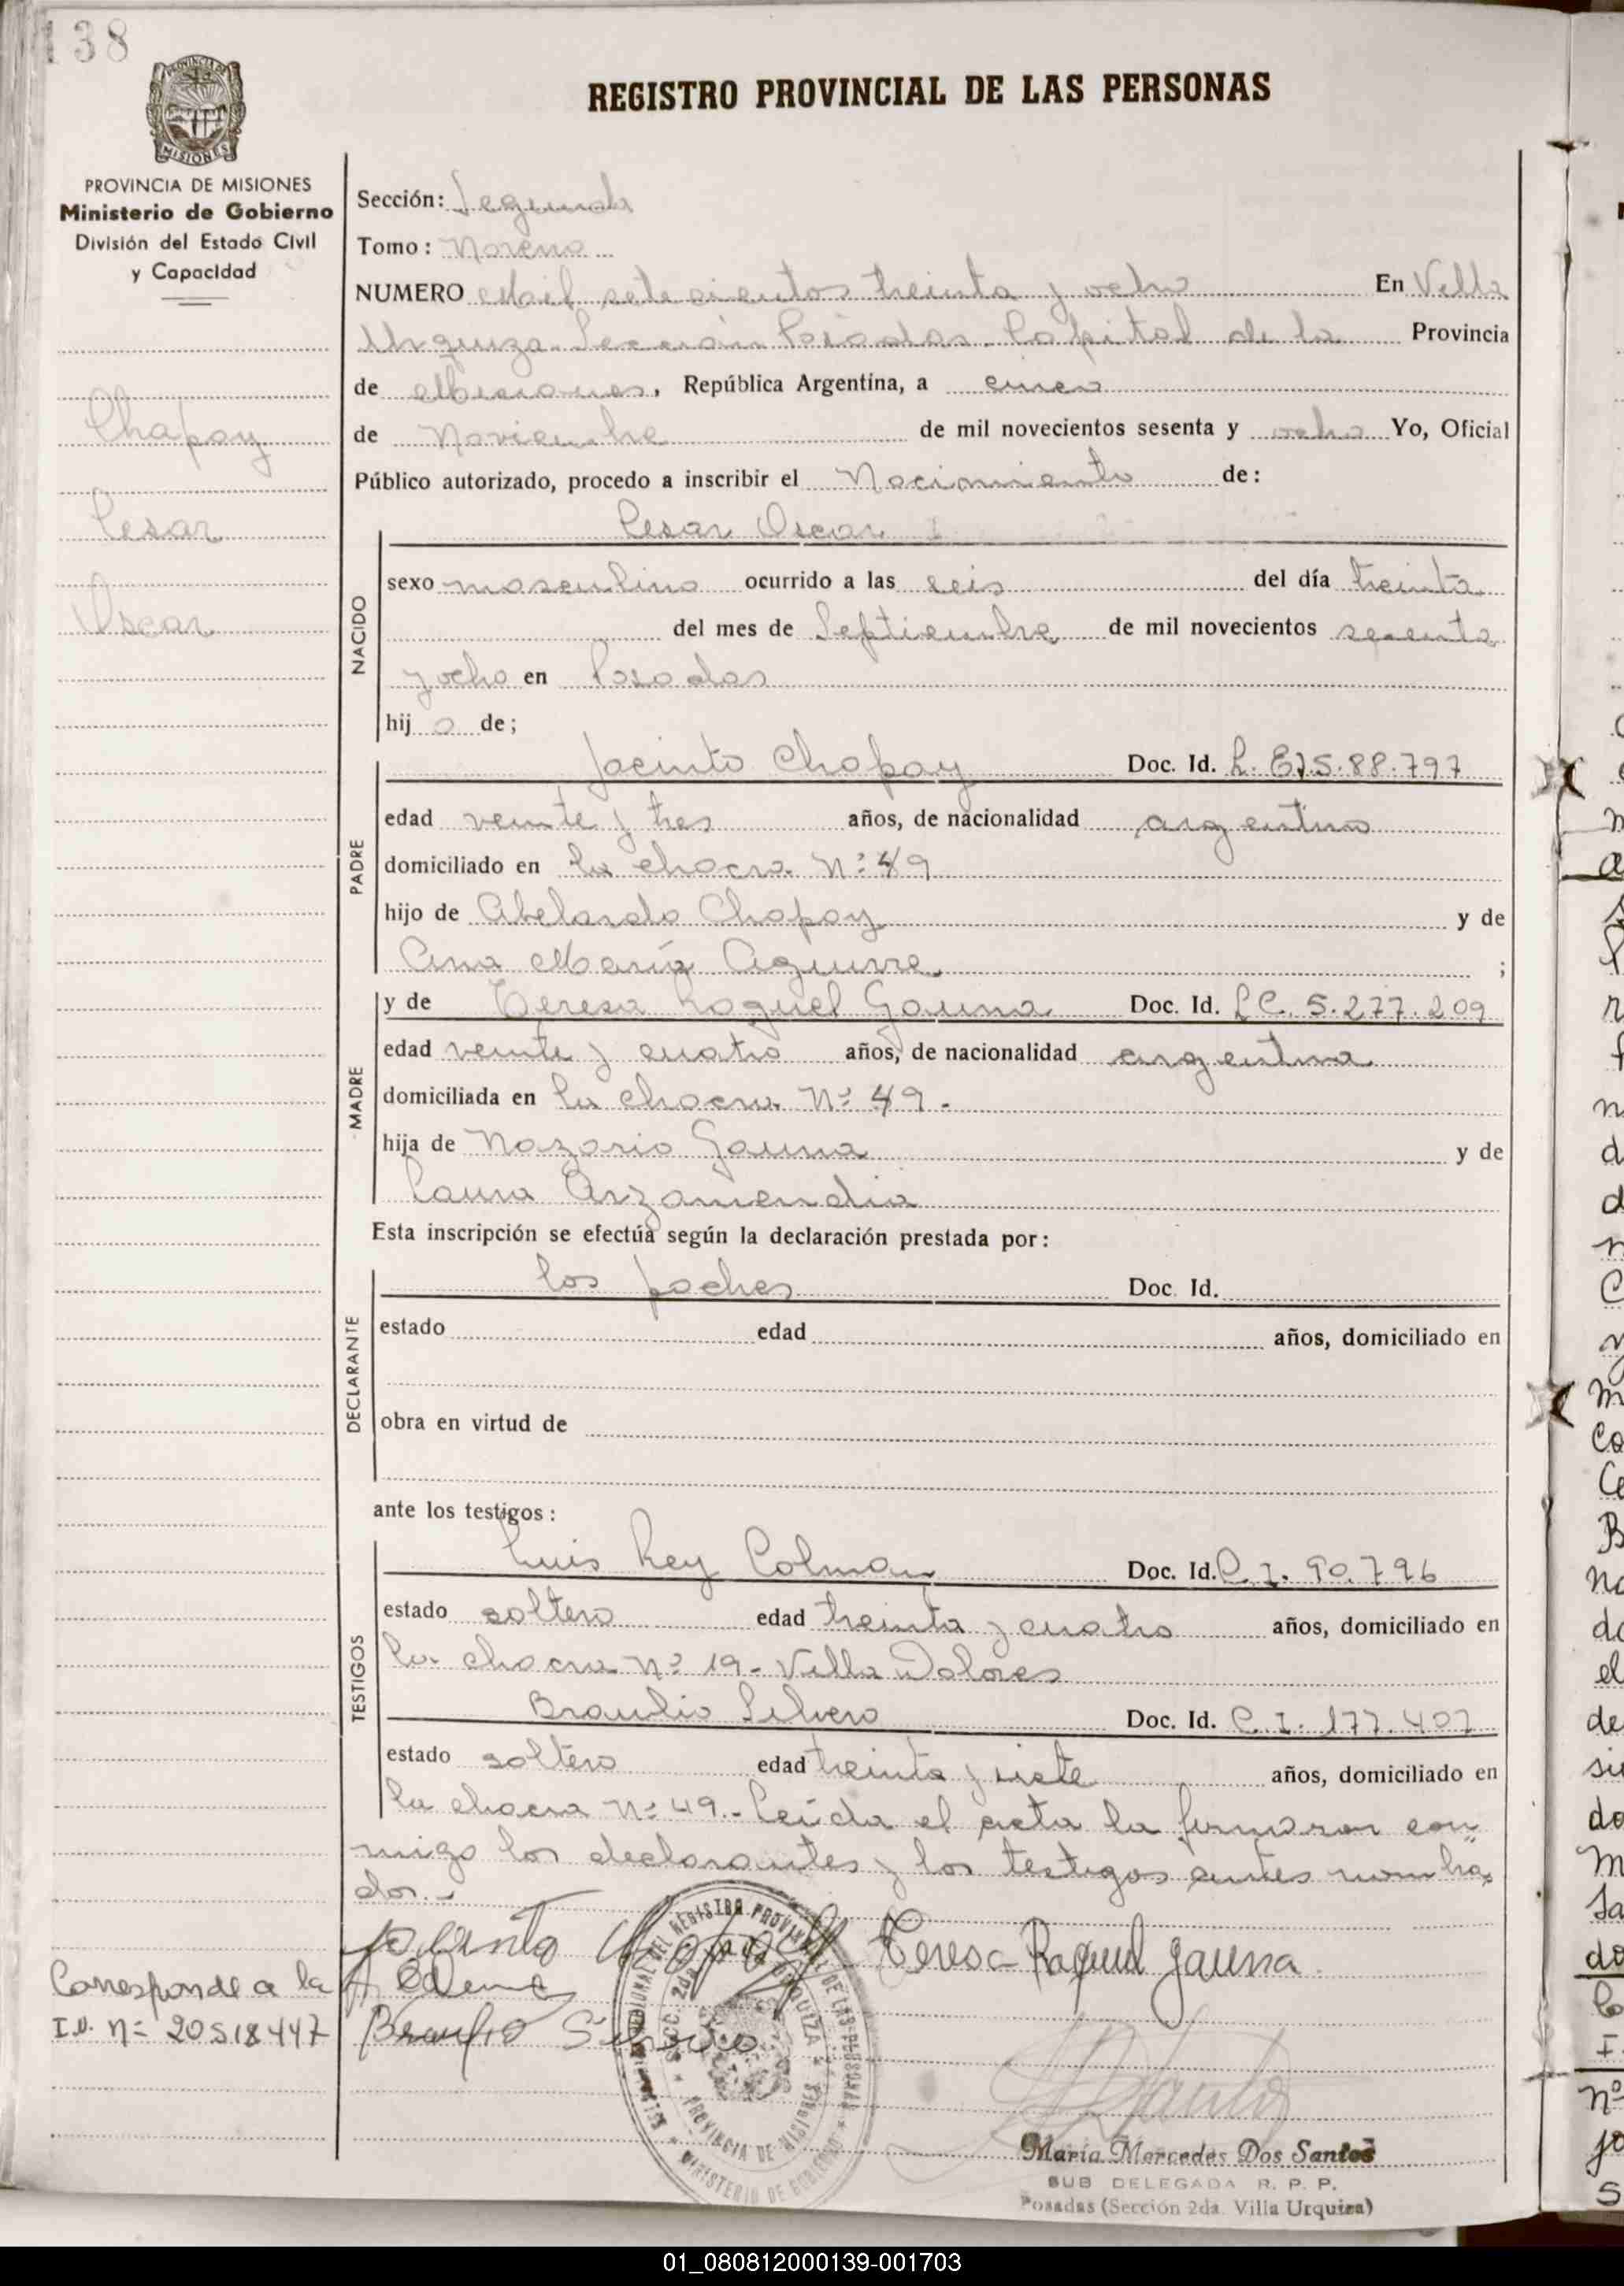 138
REGISTRO PROVINCIAL DE LAS PERSONAS
MISIONES
PROVINCIA DE MISIONES
Ministerio de Gobierno
División del Estado Civil
y Capacidad
Chapay
Cesar
Oscar
Sección: Segunda
Tomo: Noveno
NUMERO Mil setecientos treinta y ocho En Villa
Urquiza Sección Posadas. Capital de la Provincia
de Misiones, República Argentina, a cinco
de Noviembre de mil novecientos sesenta y ocho Yo, Oficial
Público autorizado, procedo a inscribir el Nacimiento de:
Cesar Oscar
NACIDO
sexo masculino ocurrido a las seis del día treinta
del mes de Septiembre de mil novecientos sesenta
y ocho en Posadas
hij o de;
PADRE
Jacinto Chapay Doc. Id. L.E 7.588.797
edad veinte y tres años, de nacionalidad argentino
domiciliado en la chacra Nº 49
hijo de Abelardo Chapay y de
Ana María Aguirre ;
MADRE
y de Teresa Raquel Gauna Doc. Id. LC. 5.277.209
edad veinte y cuatro años, de nacionalidad argentina
domiciliada en la chacra Nº 49.
hija de Nazario Gauna y de
Laura Arzamendia
Esta inscripción se efectúa según la declaración prestada por:
DECLARANTE
los padres Doc. Id.
estado edad años, domiciliado en
obra en virtud de
ante los testigos:
TESTIGOS
Luis Rey Colman Doc. Id. C.I. 90.796
estado soltero edad treinta y cuatro años, domiciliado en
la chacra Nº 19- Villa Dolores
Braulio Silvero Doc. Id. C.I. 177.407
estado soltero edad treinta y siete años, domiciliado en
la chacra Nº 49.- Leída el acta la firmaron con
migo los declarantes y los testigos antes nombra
dos.-
Jacinto Chapay Teresa Raquel Gauna
Corresponde a la
I.D. Nº 20518447
Braulio Silvero
PROVINCIA DE MISIONES
MINISTERIO DE GOBIERNO
María Mercedes Dos Santos
SUB DELEGADA R. P. P.
Posadas (Sección 2da. Villa Urquiza)
01_080812000139-001703